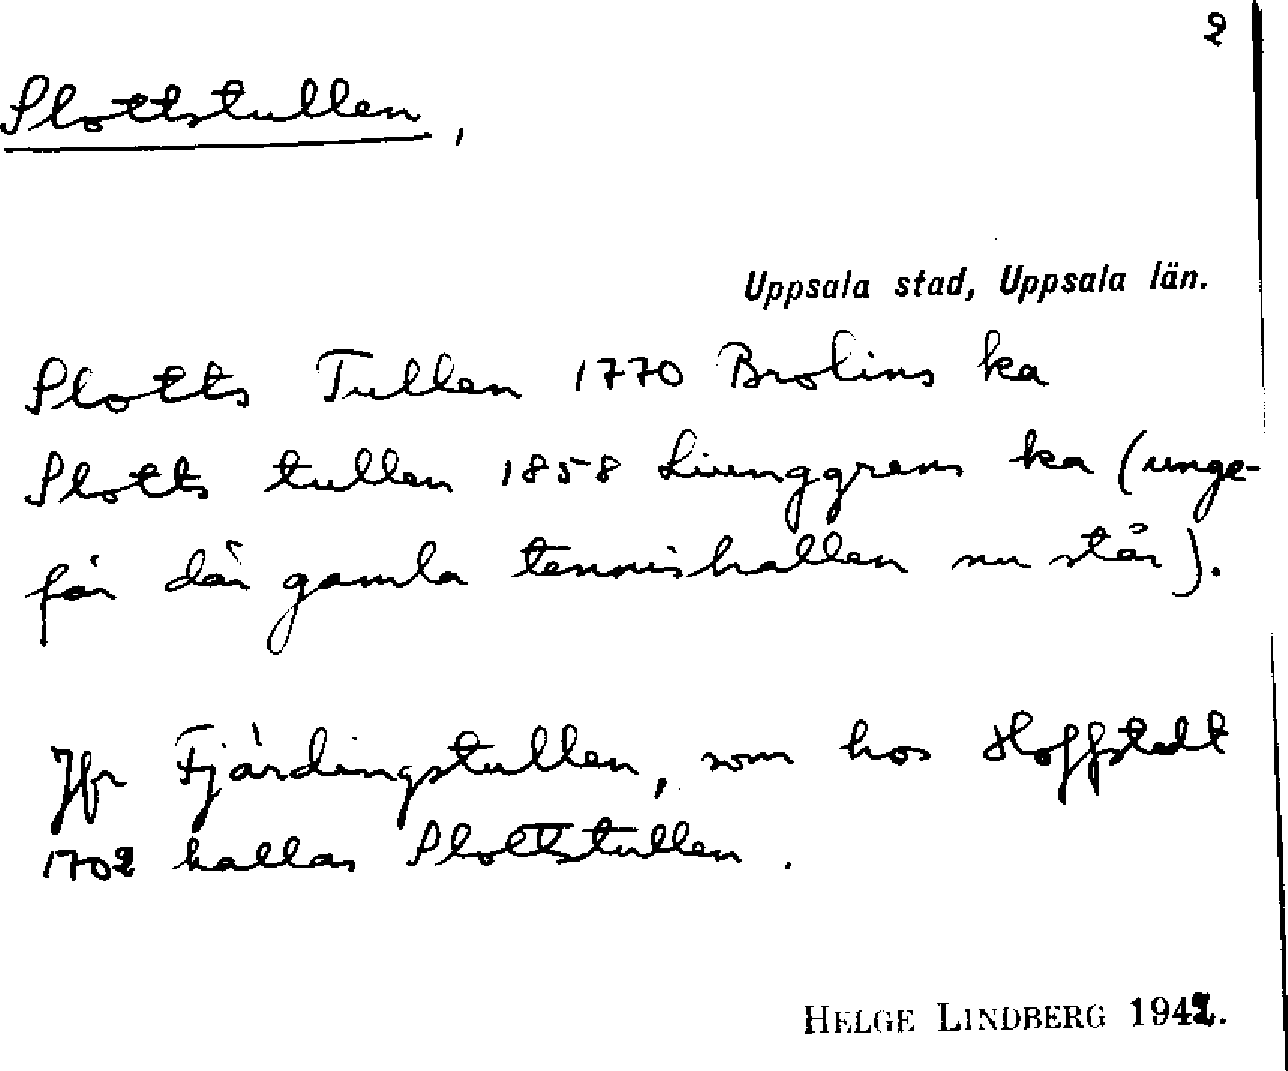 2
Slottstullen,
Uppsala stad, Uppsala län.
Slotts Tullen 1770 Brolins ka
Slotts tullen 1858 Liunggrens ka (unge-
fär där gamla tennishallen nu står).
Jfr Fjärdingstullen, som hos Hoffstedt
1702 kallas Slottstullen.
HELGE LINDBERG 1942.